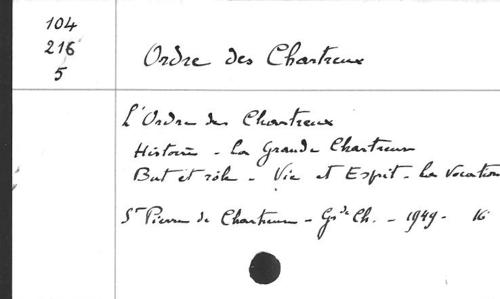 104
216
5
Ordre des Chartreux
L'Ordre des Chartreux
Histoire - La Grande Chartreuse
But et rôle - Vie et Esprit - La Vocation
St Pierre de Chartreuse - Gde Ch. - 1949 - 16